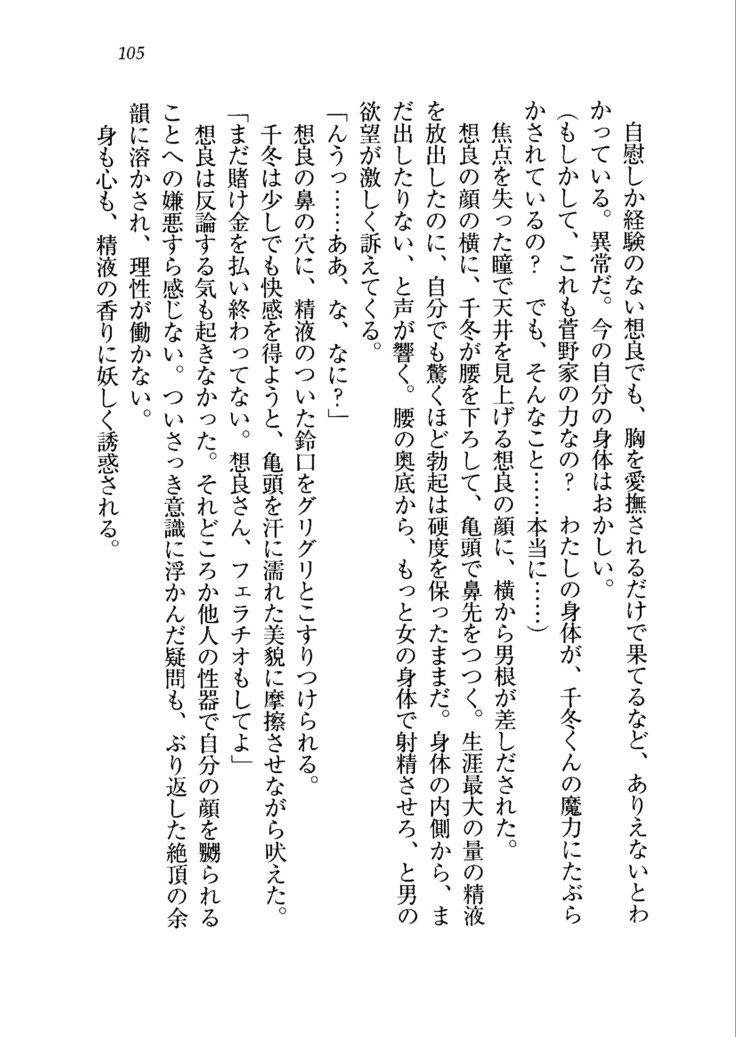 105
自慰しか経験のない想良でも、胸を愛撫されるだけで果てるなど、ありえないとわ
かっている。異常だ。今の自分の身体はおかしい。
(もしかして、これも菅野家の力なの？　わたしの身体が、千冬くんの魔力にたぶら
かされているの？　でも、そんなこと……本当に……)
焦点を失った瞳で天井を見上げる想良の顔に、横から男根が差しだされた。
想良の顔の横に、千冬が腰を下ろして、亀頭で鼻先をつつく。生涯最大の量の精液
を放出したのに、自分でも驚くほど勃起は硬度を保ったままだ。身体の内側から、ま
だ出したりない、と声が響く。腰の奥底から、もっと女の身体で射精させろ、と男の
欲望が激しく訴えてくる。
「んうっ……ああ、な、なに？」
想良の鼻の穴に、精液のついた鈴口をグリグリとこすりつけられる。
千冬は少しでも快感を得ようと、亀頭を汗に濡れた美貌に摩擦させながら吠えた。
「まだ賭け金を払い終わってない。想良さん、フェラチオもしてよ」
想良は反論する気も起きなかった。それどころか他人の性器で自分の顔を嬲られる
ことへの嫌悪すら感じない。ついさっき意識に浮かんだ疑問も、ぶり返した絶頂の余
韻に溶かされ、理性が働かない。
身も心も、精液の香りに妖しく誘惑される。